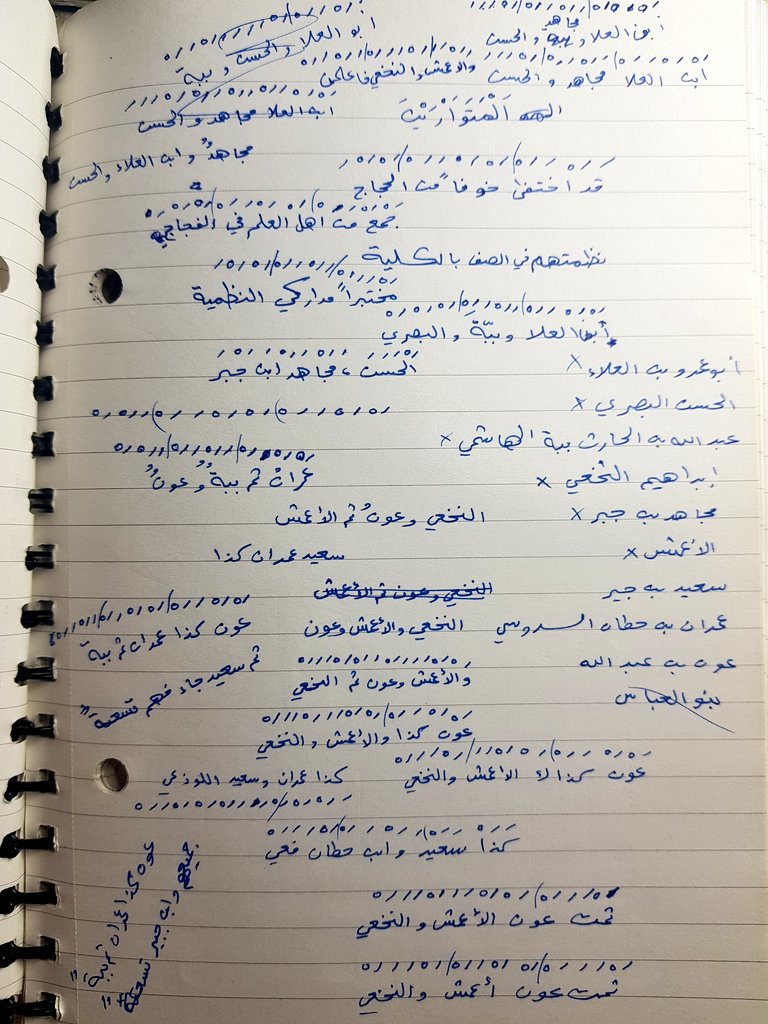 ابن العلا وببة والحسن
مجاهد
ابو العلا والحسن وببة
ابن العلا مجاهد والحسن
والأعمش والنخعي فاعلمن
المتوارين
ابن العلا مجاهد والحسن
مجاهدٌ وابن العلاء والحسن
قد اختفى خوفاً من الحجاج
جمع من أهل العلم في الفجاج
نظمتهم في الصف بالكلية
مختبراً مداركي النظمية
العلا وببّة والبصري
الحسن، مجاهد ابن جبر
أبو عمرو بن العلاء ×
الحسن البصري ×
عبد الله بن الحارث ببة الهاشمي ×
إبراهيم النخعي ×
مجاهد بن جبر ×
الأعمش ×
سعيد بن جبير
عمران بن حطان السدوسي
عون بن عبد الله
بنو العباس
عمرانُ ثم ببةٌ وعونُ
النخعي وعونُ ثم الأعمش
سعيد عمران كذا
النخعي وعون ثم الأعمش
النخعي والأعمش وعون
عون كذا عمران ثم ببة
والأعمش وعون ثم النخعي
ثم سعيد جاء فهم تسعة
عون كذا والأعمش والنخعي
عون كذا الأعمش والنخعي
كذا عمران وسعيد اللوذعي
كذا سعيد وابن حطان فعي
ثمت عون الأعمش والنخعي
ثمت عون أعمش والنخعي
عون كذا عمران ثم ببة
جميعهم وابن جبير تسعة